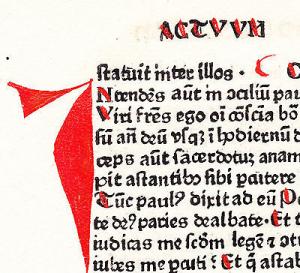 ACTVVM
ſtatuit inter illos · C
Ntendēs aūt in ↄciliū pau
Viri frēs ego oī ↄſcia bō
fū añ deū vſqꝫ ī hodiernū d
ceps aūt ſacerdotuꝫ anam
pit aſtantibꝰ ſibi pcutere
Tūc paulꝰ dixit ad eū P
te deꝰ paries dealbate · Et t
iudicas me ſcōm legē ⁊ ↄt
iubes me pcuti ? Et q̄ aſtab